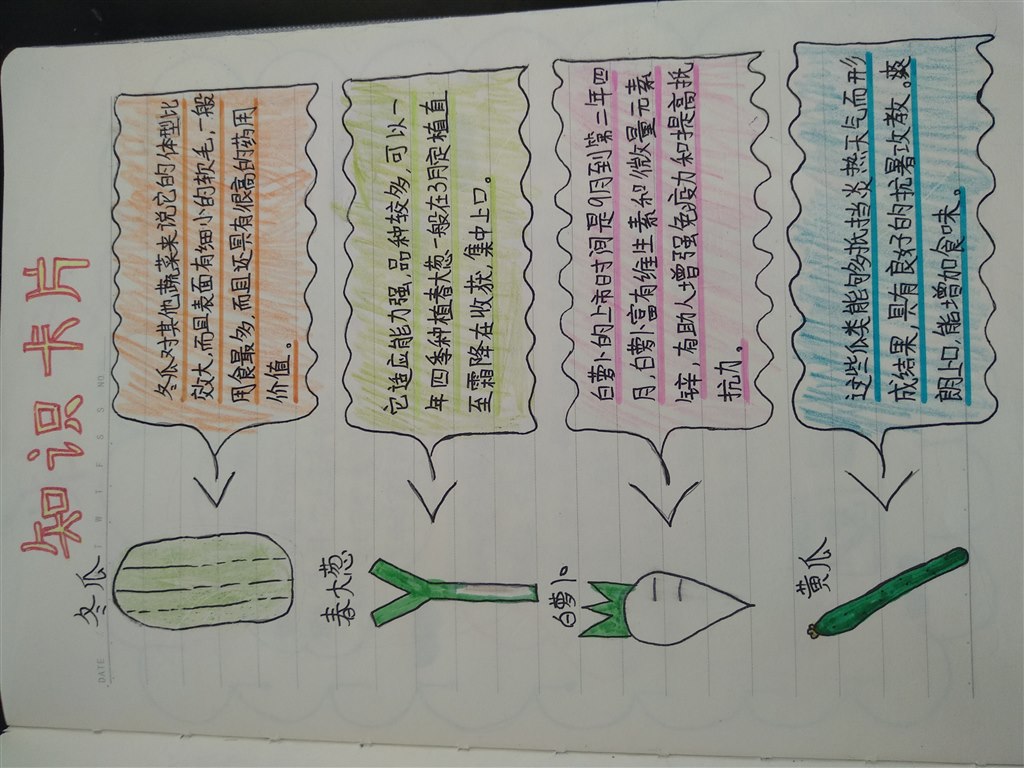 知识卡片
DATE M T W T F S S NO
冬瓜
冬瓜对其他蔬菜来说它的体型比
效大,而且表面有细小的软毛,一般
用食最多,而且还具有很高的药用
价值。
春大葱
它适应能力强,品种较多,可以一
年四季种植春大葱一般在3月定植直
至霜降在收获,集中上口。
白萝卜
白萝卜的上市时间是9月到第二年四
月白萝卜富有维生素和微量元素
锌,有助人增强免疫力和提高抵
抗力。
黄瓜
这些瓜类能够抵挡炎热天气而形
成结果,具有良好的扰暑攻教。爽
朗上口,能增加食味。